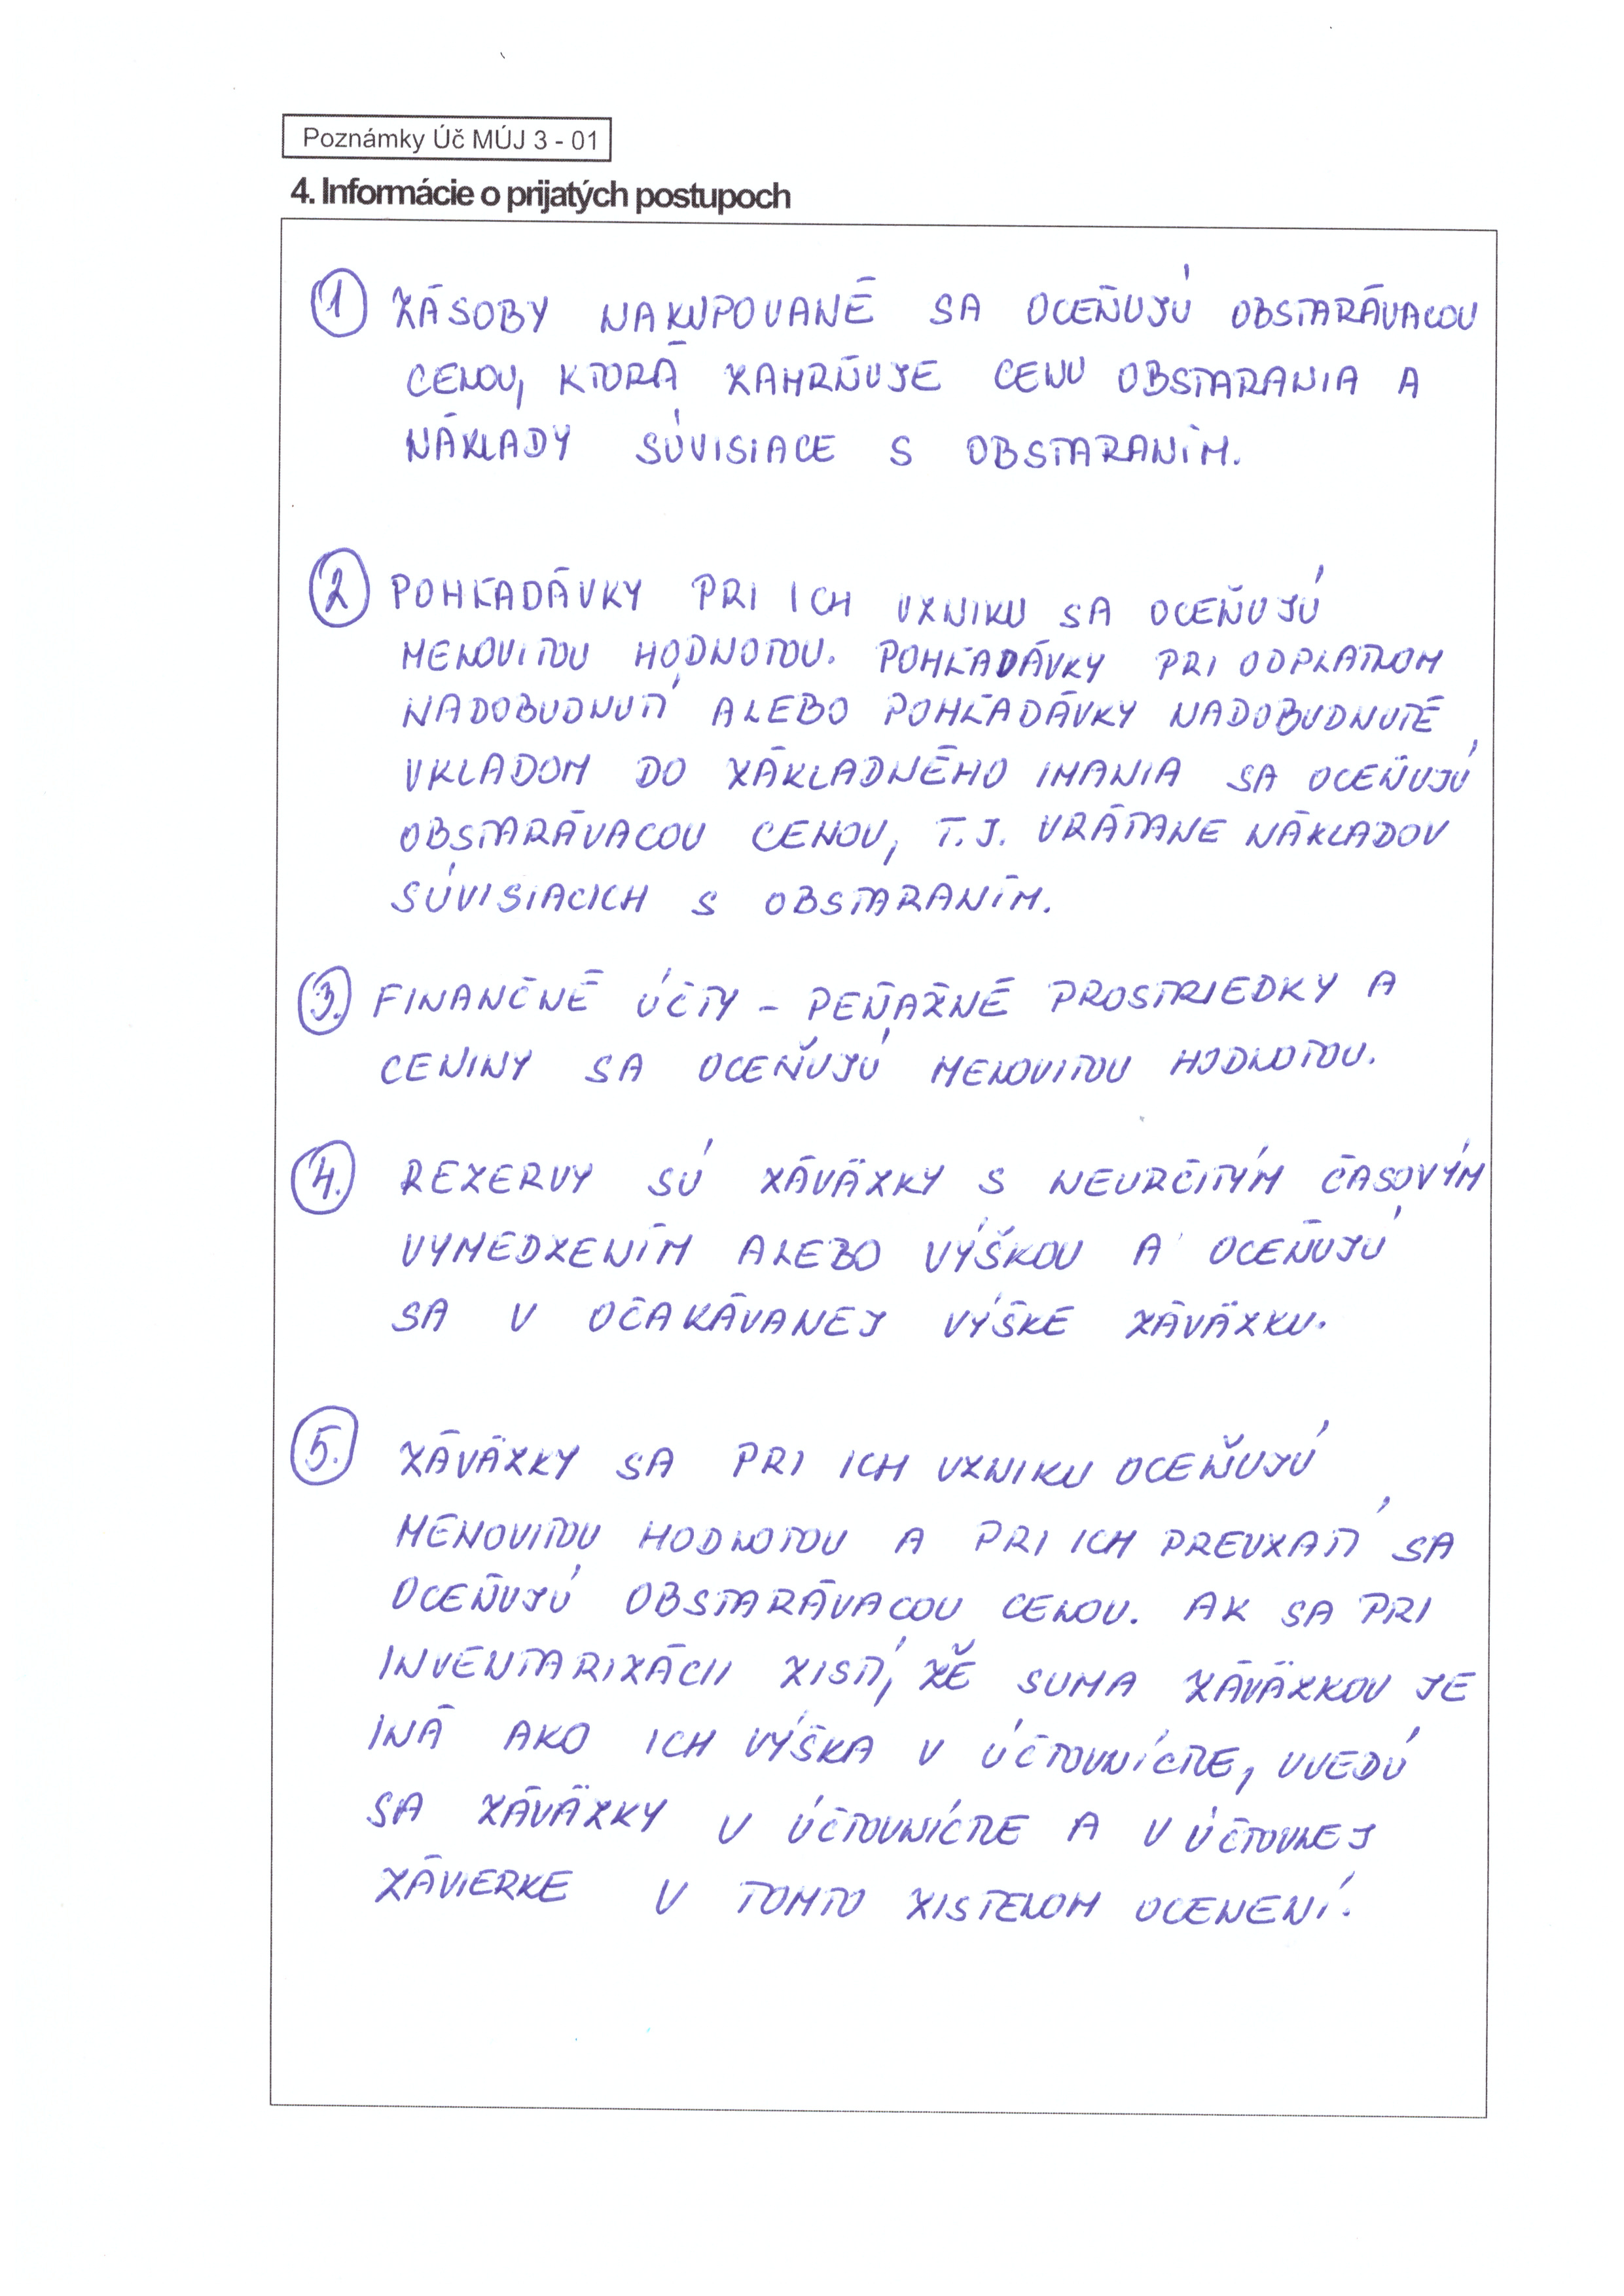 Poznámky Úč MÚJ 3 - 01
4. Informácie o prijatých postupoch
1 ZÁSOBY NAKUPOVANÉ SA OCEŇUJÚ OBSTARÁVACOU
CENOU, KTORÁ ZAHRŇUJE CENU OBSTARANIA A
NÁKLADY SÚVISIACE S OBSTARANÍM.
2 POHĽADÁVKY PRI ICH VZNIKU SA OCEŇUJÚ
MENOVITOU HODNOTOU. POHĽADÁVKY PRI ODPLATNOM
NADOBUDNUTÍ ALEBO POHĽADÁVKY NADOBUDNUTÉ
VKLADOM DO ZÁKLADNÉHO IMANIA SA OCEŇUJÚ
OBSTARÁVACOU CENOU, T.J. VRÁTANE NÁKLADOV
SÚVISIACICH S OBSTARANÍM.
3. FINANČNÉ ÚČTY - PEŇAŽNÉ PROSTRIEDKY A
CENINY SA OCEŇUJÚ MENOVITOU HODNOTOU.
4. REZERVY SÚ ZÁVÄZKY S NEURČITÝM ČASOVÝM
VYMEDZENÍM ALEBO VÝŠKOU A OCEŇUJÚ
SA V OČAKÁVANEJ VÝŠKE ZÁVÄZKU.
5. ZÁVÄZKY SA PRI ICH VZNIKU OCEŇUJÚ
MENOVITOU HODNOTOU A PRI ICH PREVZATÍ SA
OCEŇUJÚ OBSTARÁVACOU CENOU. AK SA PRI
INVENTARIZÁCII ZISTÍ, ŽE SUMA ZÁVÄZKOV JE
INÁ AKO ICH VÝŠKA V ÚČTOVNÍCTVE, UVEDÚ
SA ZÁVÄZKY V ÚČTOVNÍCTVE A V ÚČTOVNEJ
ZÁVIERKE V TOMTO ZISTENOM OCENENÍ.